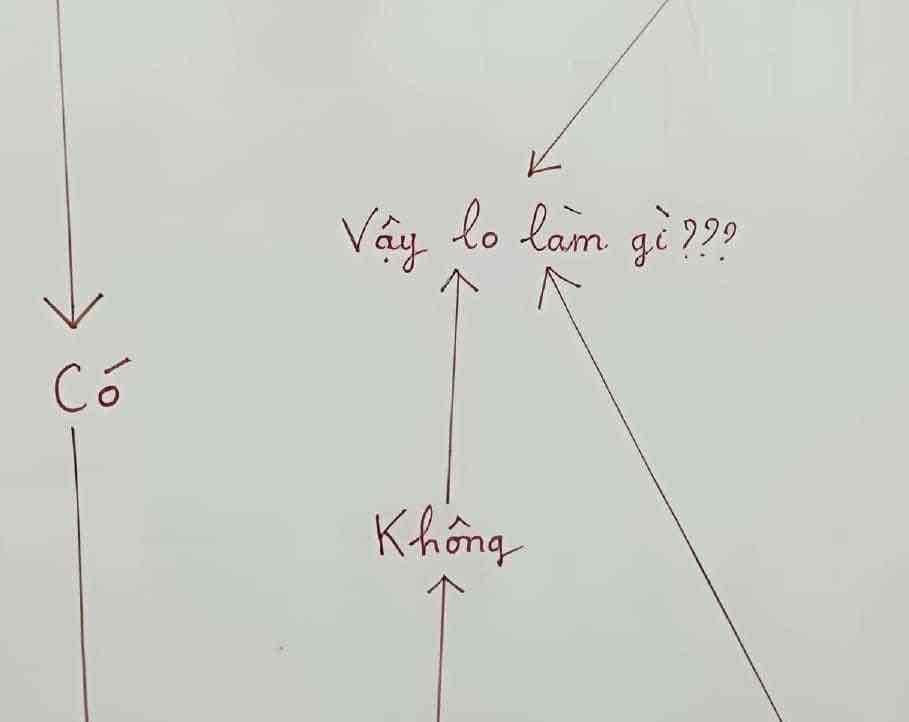 Vậy lo làm gì???
Có
Không